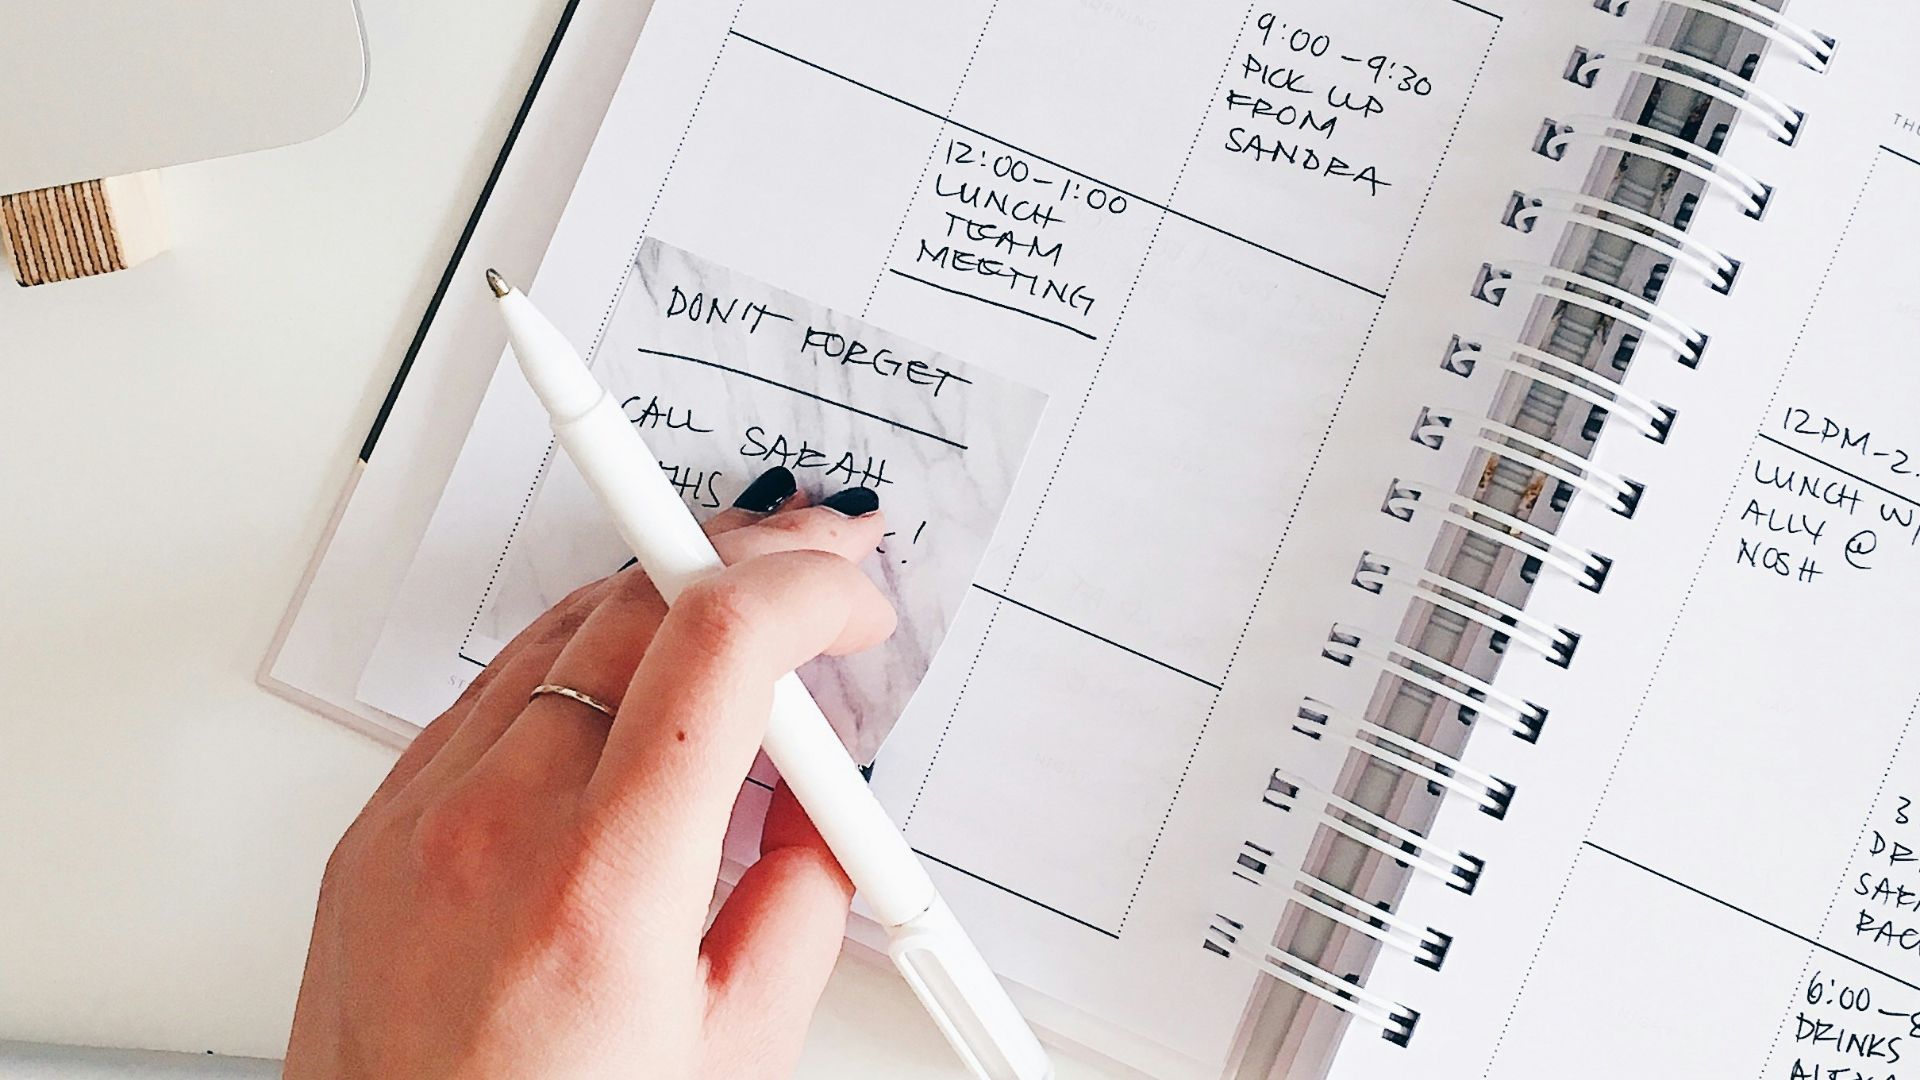 9:00-9:30
PICK UP
FROM
SANDRA
12:00-1:00
LUNCH
TEAM
MEETING
DON'T FORGET
CALL SARAH
THIS
!
12PM-2
LUNCH W/
ALLY @
NOSH
3
6:00-
DRINKS